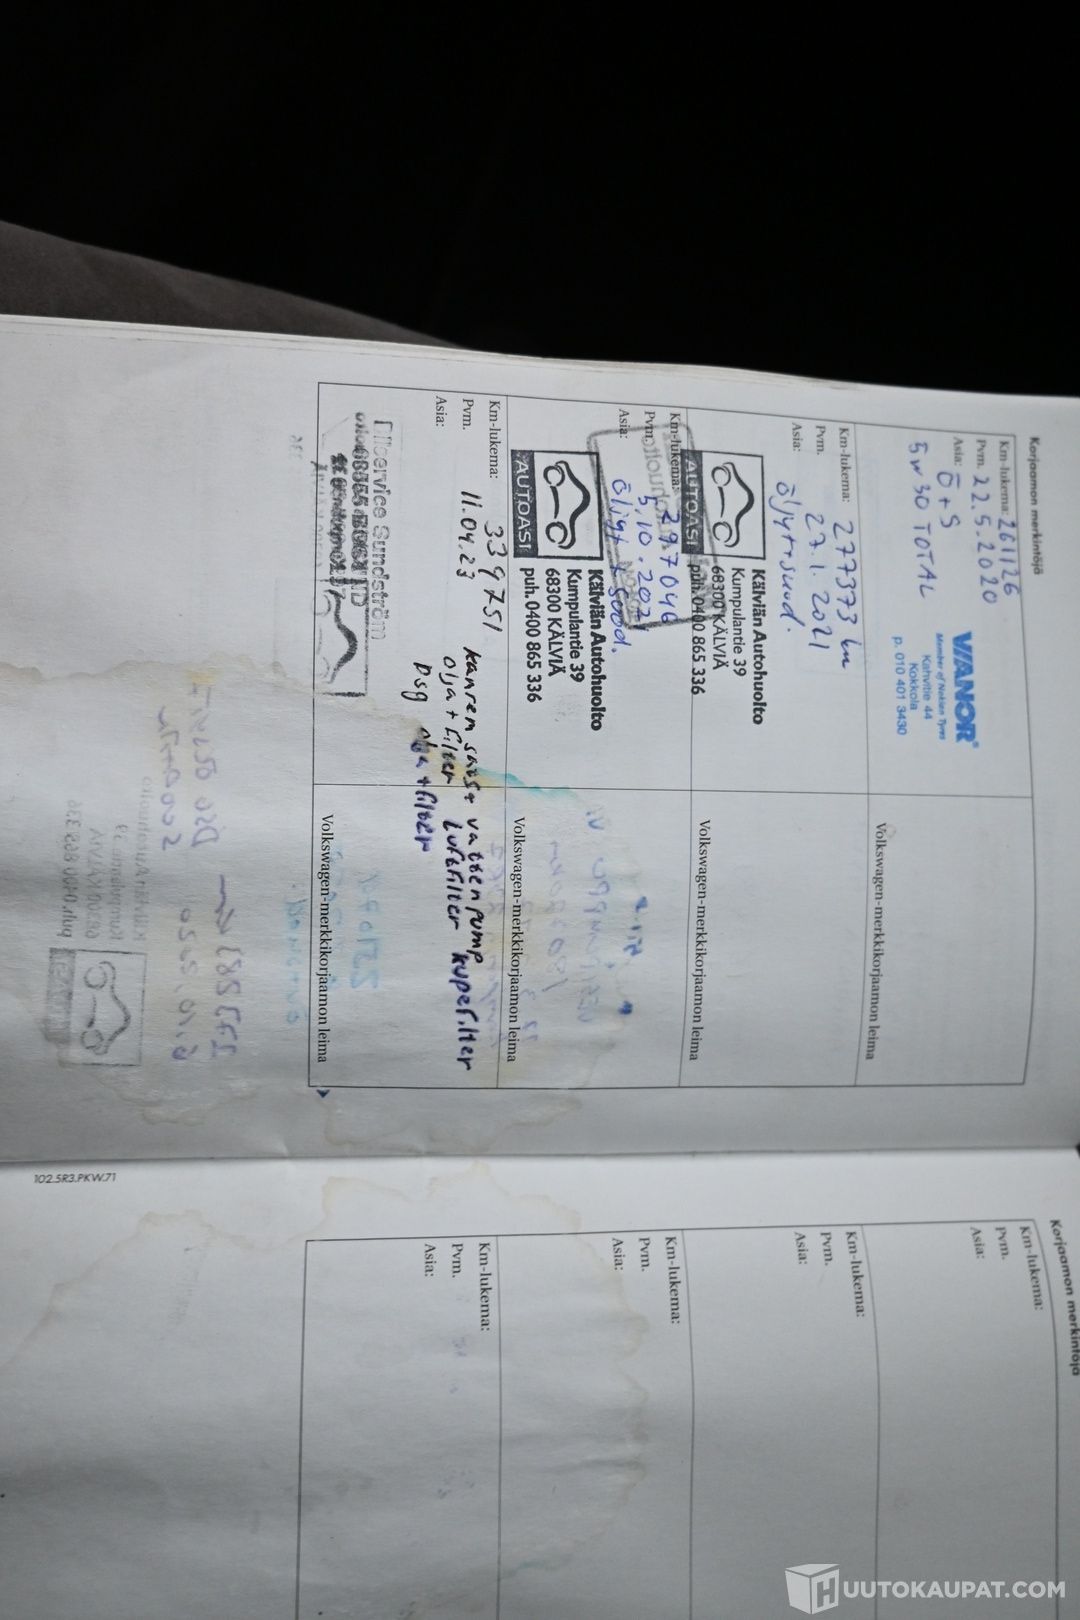 Korjaamon merkintöjä
Km-lukema: 261126
Pvm. 22.5.2020
Asia: Ö+S
5W30 TOTAL
VIANOR
Member of Nokian Tyres
Kahvitie 44
Kokkola
p. 010 401 3430
Volkswagen-merkkikorjaamon leima
Km-lukema: 277373 km
Pvm. 27.1.2021
Asia: öljyt+suod.
AUTOASI
Kälviän Autohuolto
Kumpulantie 39
68300 KÄLVIÄ
puh. 0400 865 336
Volkswagen-merkkikorjaamon leima
Km-lukema: 297046
Pvm. 5.10.2021
Asia: öljyt + suod.
AUTOASI
Kälviän Autohuolto
Kumpulantie 39
68300 KÄLVIÄ
puh. 0400 865 336
Volkswagen-merkkikorjaamon leima
Km-lukema: 339751
Pvm. 11.04.23
Asia:
kamrem sats+ vattenpump
olja+filter luftfilter kupefilter
Dsg olja+filter
Bilservice Sundström
Volkswagen-merkkikorjaamon leima
102.5R3.PKW.71
Korjaamon merkintöjä
Km-lukema:
Pvm.
Asia:
Km-lukema:
Pvm.
Asia:
Km-lukema:
Pvm.
Asia:
Km-lukema:
Pvm.
Asia:
HUUTOKAUPAT.COM